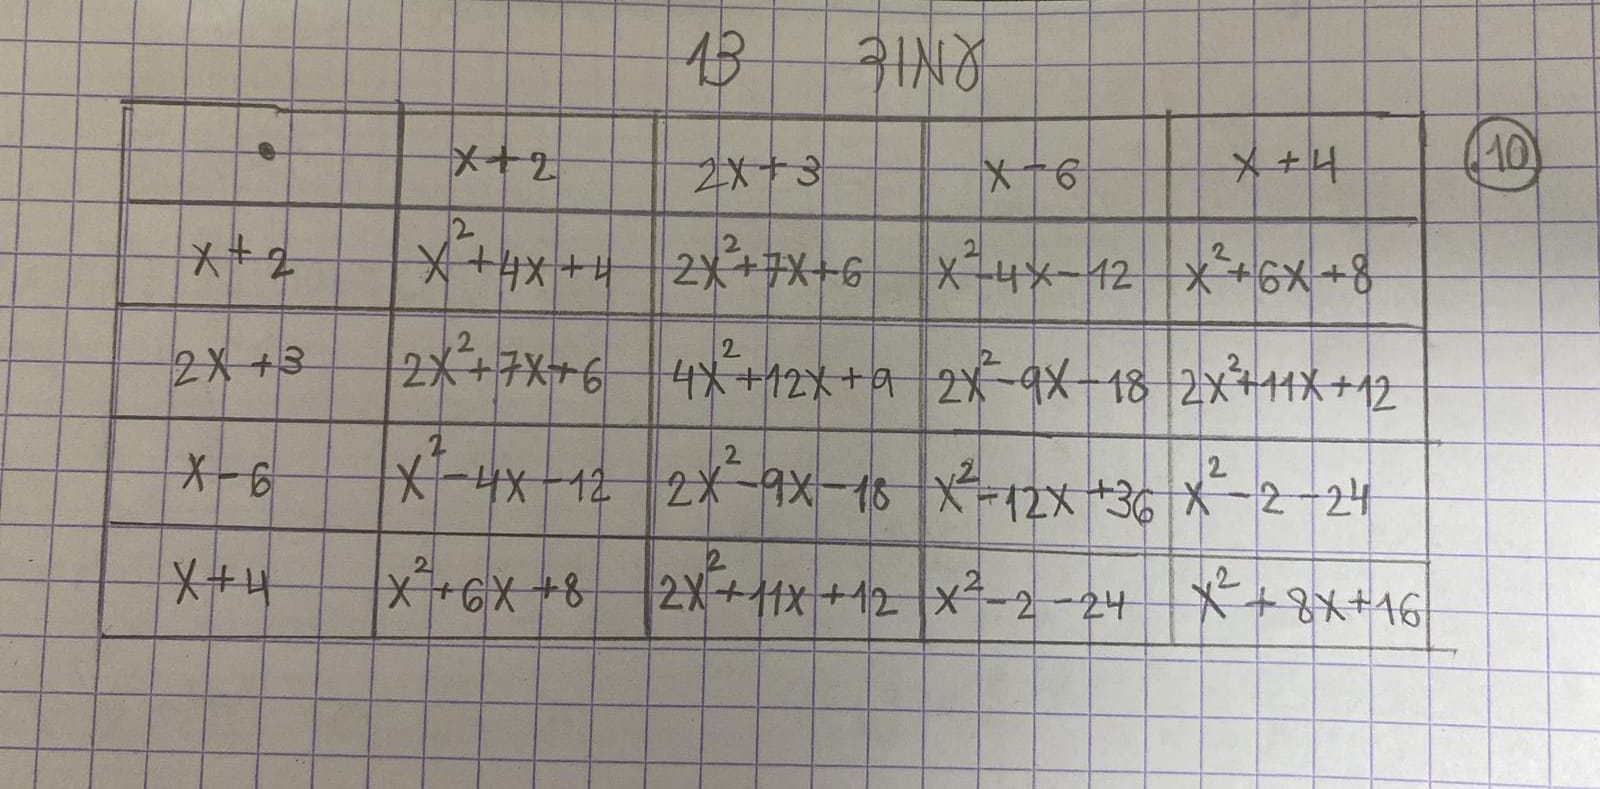 13 ЗINX
• x+2 2x+3 x-6 x+4 10
x+2 x²+4x+4 2x²+7x+6 x²-4x-12 x²+6x+8
2x+3 2x²+7x+6 4x²+12x+9 2x²-9x-18 2x²+11x+12
x-6 x²-4x-12 2x²-9x-18 x²-12x+36 x²-2-24
x+4 x²+6x+8 2x²+11x+12 x²-2-24 x²+8x+16